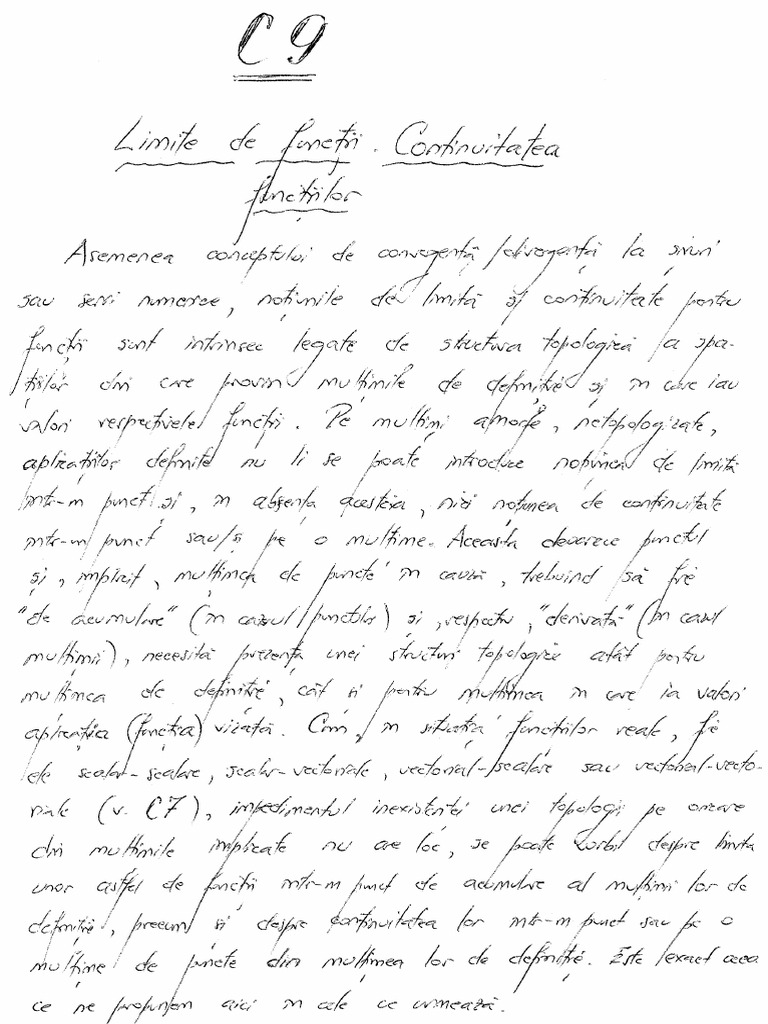 C 9
Limite de funcții. Continuitatea
funcțiilor
Asemenea conceptului de convergență/divergență la șiruri
sau serii numerice, noțiunile de limită și continuitate pentru
funcții sunt intrinsec legate de structura topologică a spa-
țiilor din care provin mulțimile de definiție și în care iau
valori respectivele funcții. Pe mulțimi amorfe, netopologizate,
aplicațiilor definite nu li se poate introduce noțiunea de limită
într-un punct și, în absența acesteia, nici noțiunea de continuitate
într-un punct sau/și pe o mulțime. Aceasta deoarece punctul
și, implicit, mulțimea de puncte în cauză, trebuind să fie
"de acumulare" (în cazul punctului) și, respectiv, "derivată" (în cazul
mulțimii), necesită prezența unei structuri topologice atât pentru
mulțimea de definiție, cât și pentru mulțimea în care ia valori
aplicația (funcția) vizată. Cum, în situația funcțiilor reale, fie
ele scalar-scalare, scalar-vectoriale, vectorial-scalare sau vectorial-vecto-
riale (v. C7), impedimentul inexistenței unei topologii pe oricare
din mulțimile implicate nu are loc, se poate vorbi despre limita
unor astfel de funcții într-un punct de acumulare al mulțimii lor de
definiție, precum și despre continuitatea lor într-un punct sau pe o
mulțime de puncte din mulțimea lor de definiție. Este exact ceea
ce ne propunem aici în cele ce urmează.